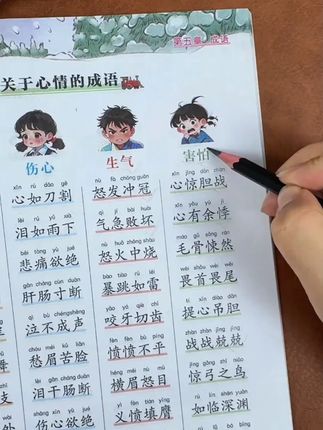 第五章 成语
关于心情的成语
伤心 生气 害怕
xīn rú dāo gē nù fà chōng guān xīn jīng dǎn zhàn
心如刀割 怒发冲冠 心惊胆战
lèi rú yǔ xià qì jí bài huài xīn yǒu yú jì
泪如雨下 气急败坏 心有余悸
bēi tòng yù jué nù huǒ zhōng shāo máo gǔ sǒng rán
悲痛欲绝 怒火中烧 毛骨悚然
gān cháng cùn duàn bào tiào rú léi wèi shǒu wèi wěi
肝肠寸断 暴跳如雷 畏首畏尾
qì bù chéng shēng yǎo yá qiè chǐ tí xīn diào dǎn
泣不成声 咬牙切齿 提心吊胆
chóu méi kǔ liǎn fèn fèn bù píng zhàn zhàn jīng jīng
愁眉苦脸 愤愤不平 战战兢兢
lèi gān cháng duàn héng méi nù mù jīng gōng zhī niǎo
泪干肠断 横眉怒目 惊弓之鸟
shāng xīn yù jué yì fèn tián yīng rú lín shēn yuān
伤心欲绝 义愤填膺 如临深渊